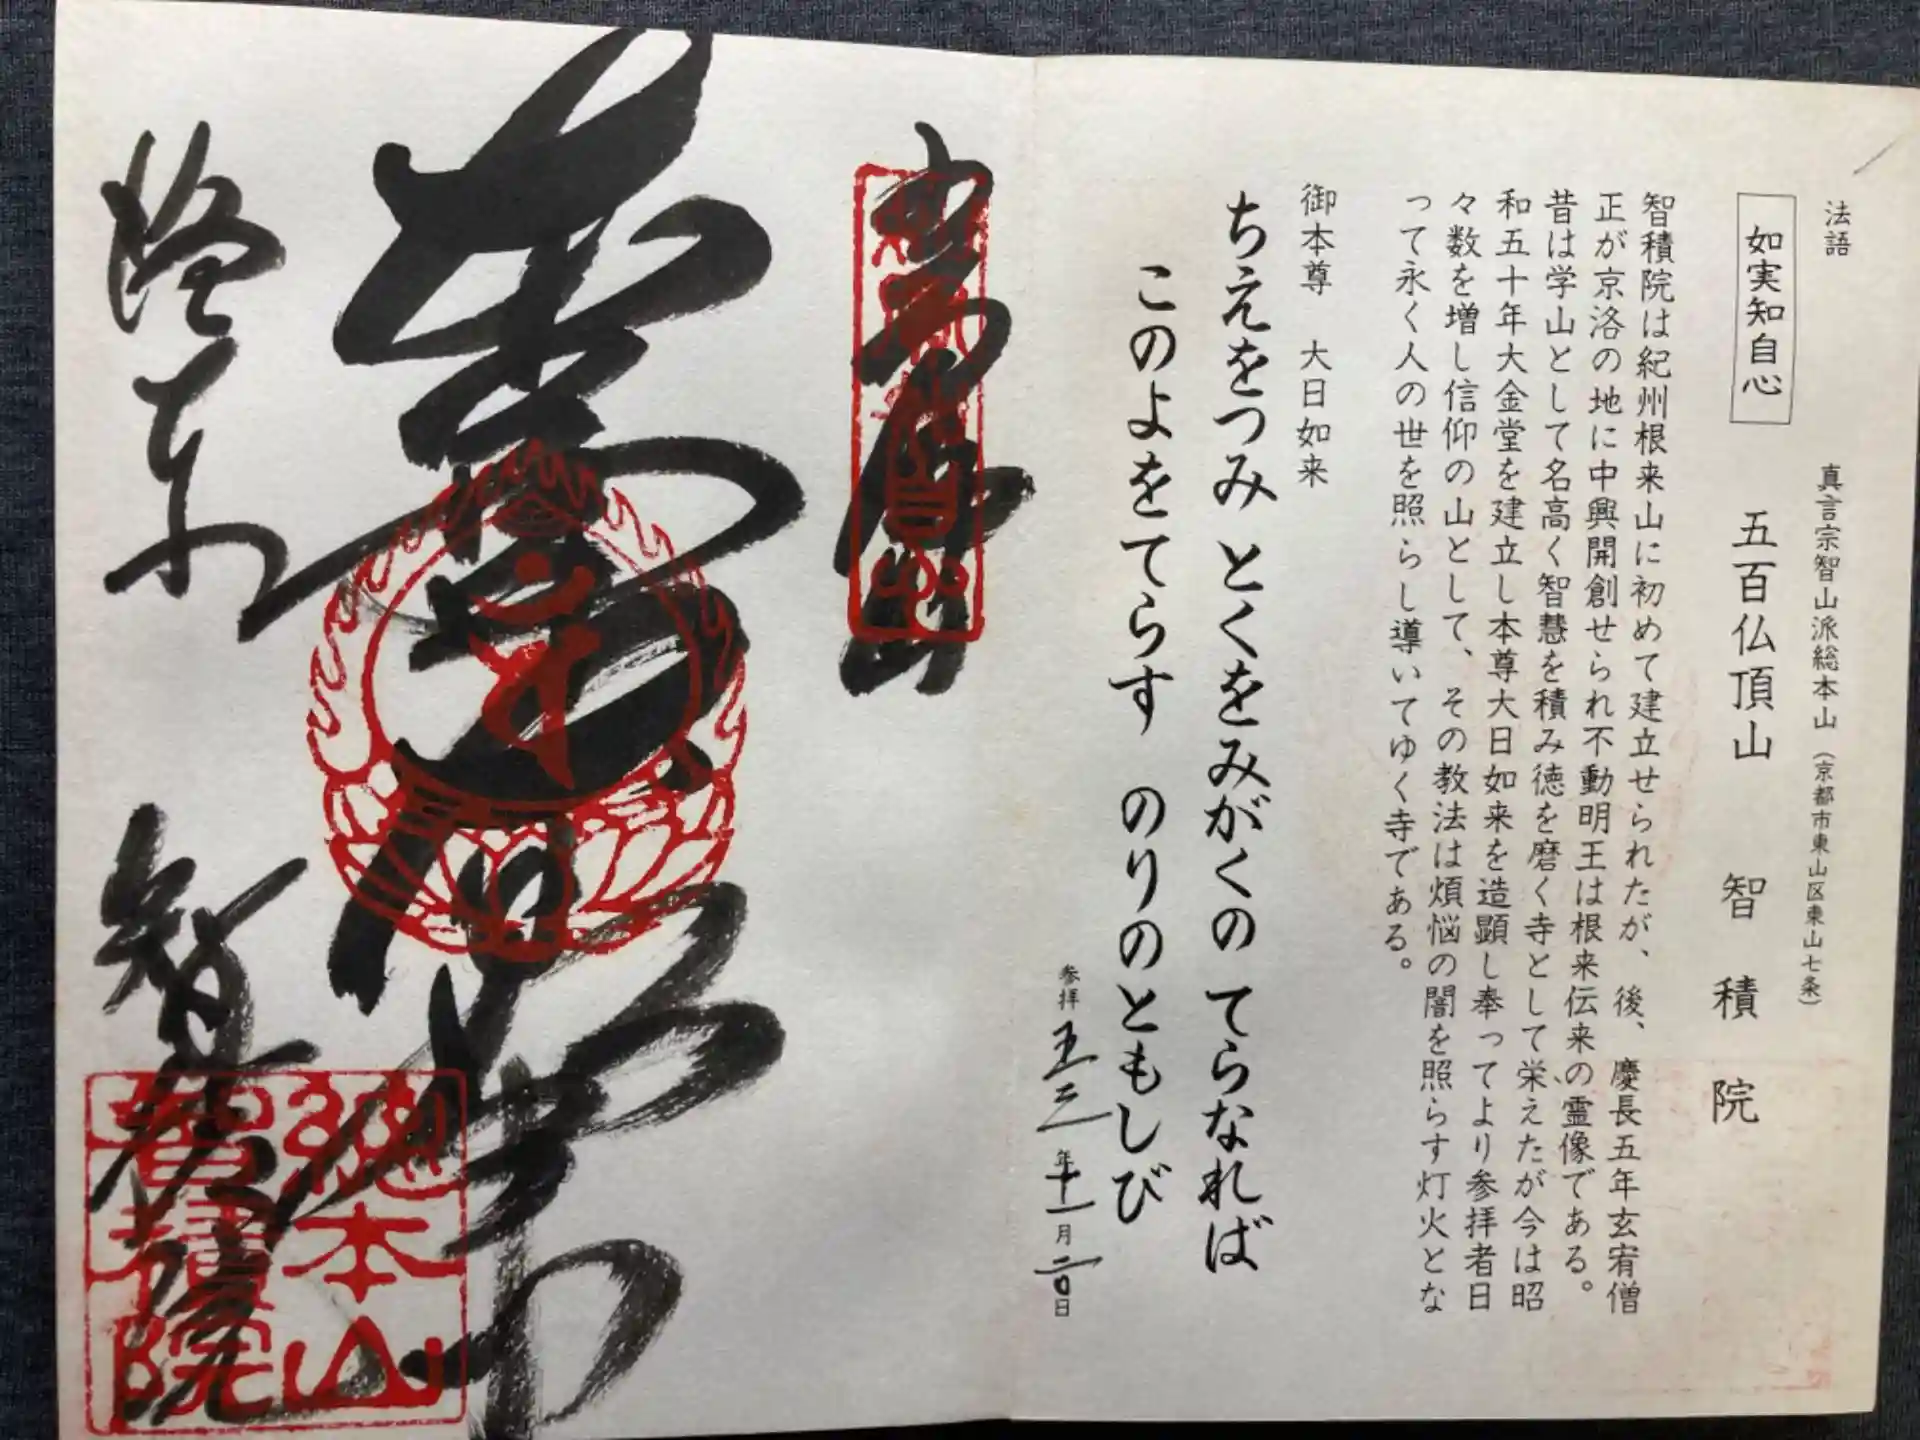 法語
真言宗智山派総本山（京都市東山区東山七条）
如実知自心
五百仏頂山　智積院
智積院は紀州根来山に初めて建立せられたが、後、慶長五年玄宥僧
正が京洛の地に中興開創せられ不動明王は根来伝来の霊像である。
昔は学山として名高く智慧を積み徳を磨く寺として栄えたが今は昭
和五十年大金堂を建立し本尊大日如来を造顕し奉ってより参拝者日
々数を増し信仰の山として、その教法は煩悩の闇を照らす灯火とな
って永く人の世を照らし導いてゆく寺である。
御本尊　大日如来
ちえをつみ とくをみがくの てらなれば
このよをてらす のりのともしび
参拝 五三年十一月二〇日
洛東
智積院
総本山
智積院